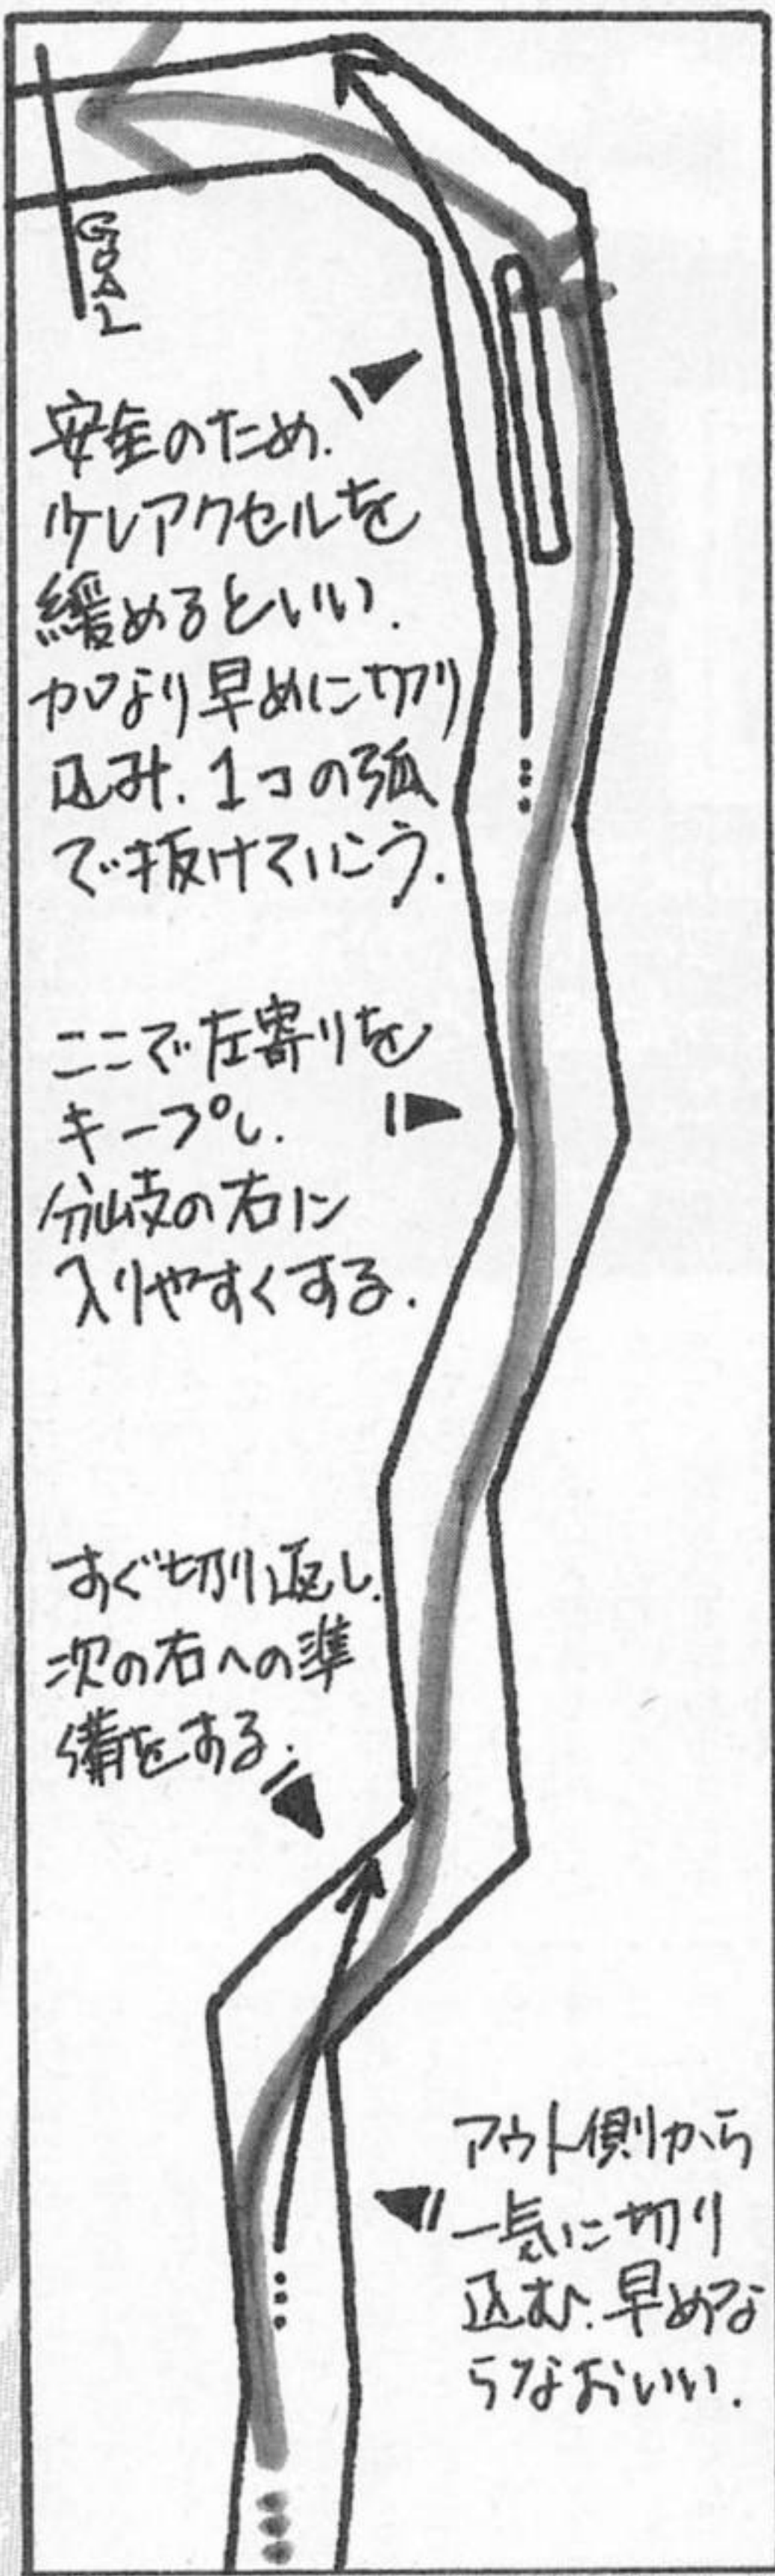 GOAL
安全のため.
少しアクセルを
緩めるといい.
カロより早めに切り
込み.1コの弧
で抜けていこう.
ここで左寄りを
キープし.
分岐の右に
入りやすくする.
すぐ切り返し.
次の右への準
備をする.
アウト側から
一気に切り
込む.早めな
らなおいい.